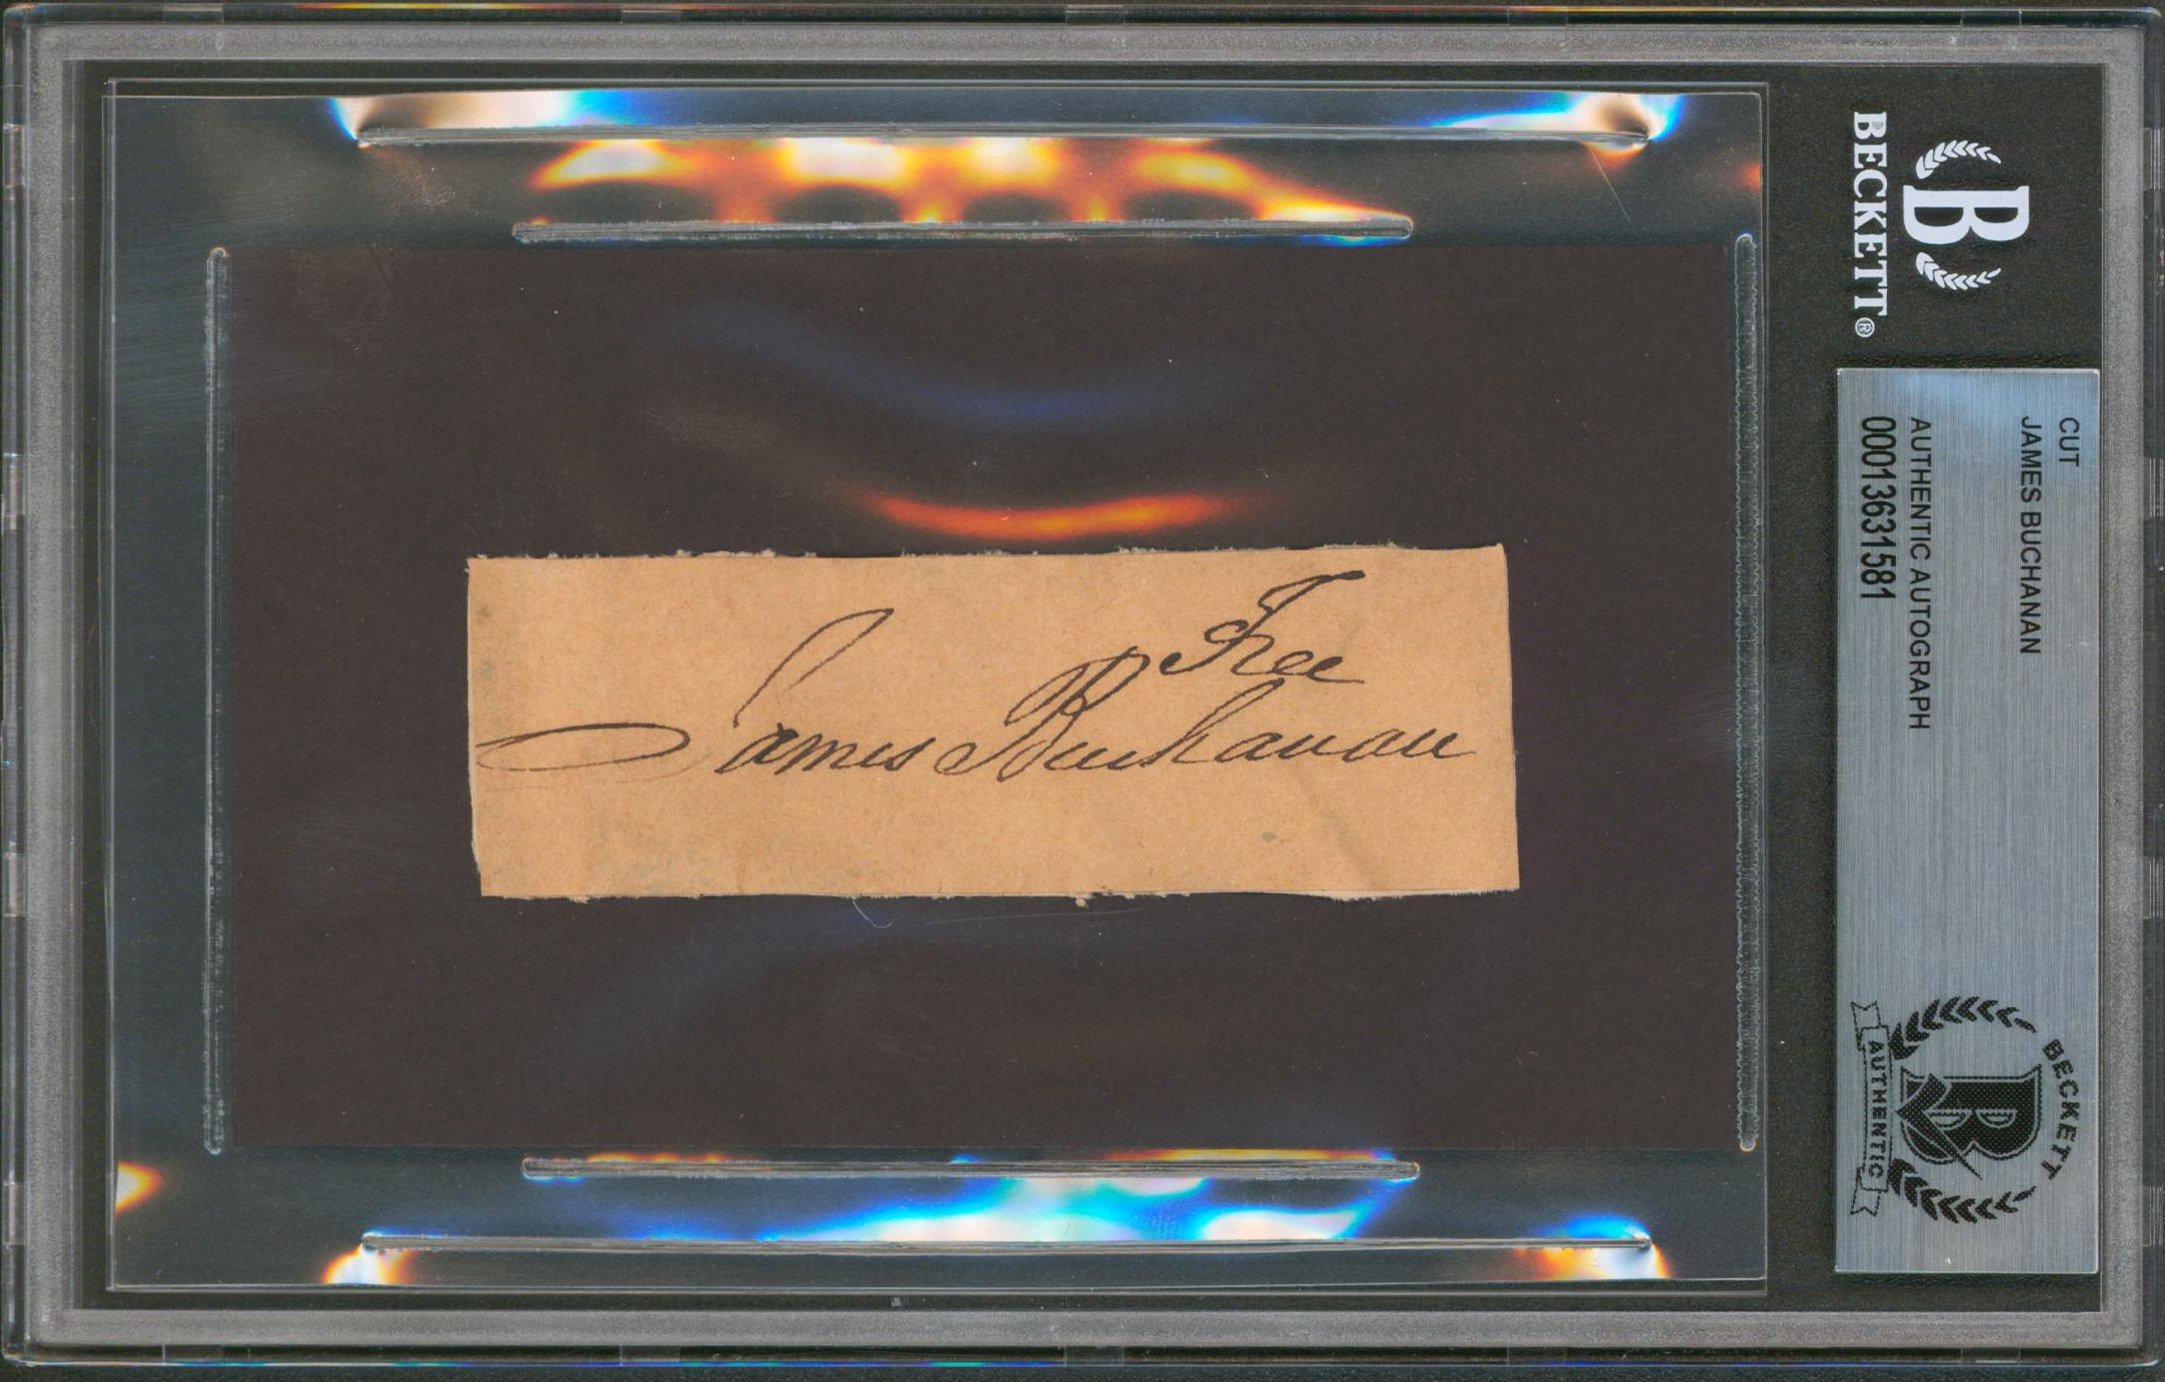 Free
James Buchanan
BECKETT®
B
CUT
JAMES BUCHANAN
AUTHENTIC AUTOGRAPH
00013631581
BECKETT
B
AUTHENTIC